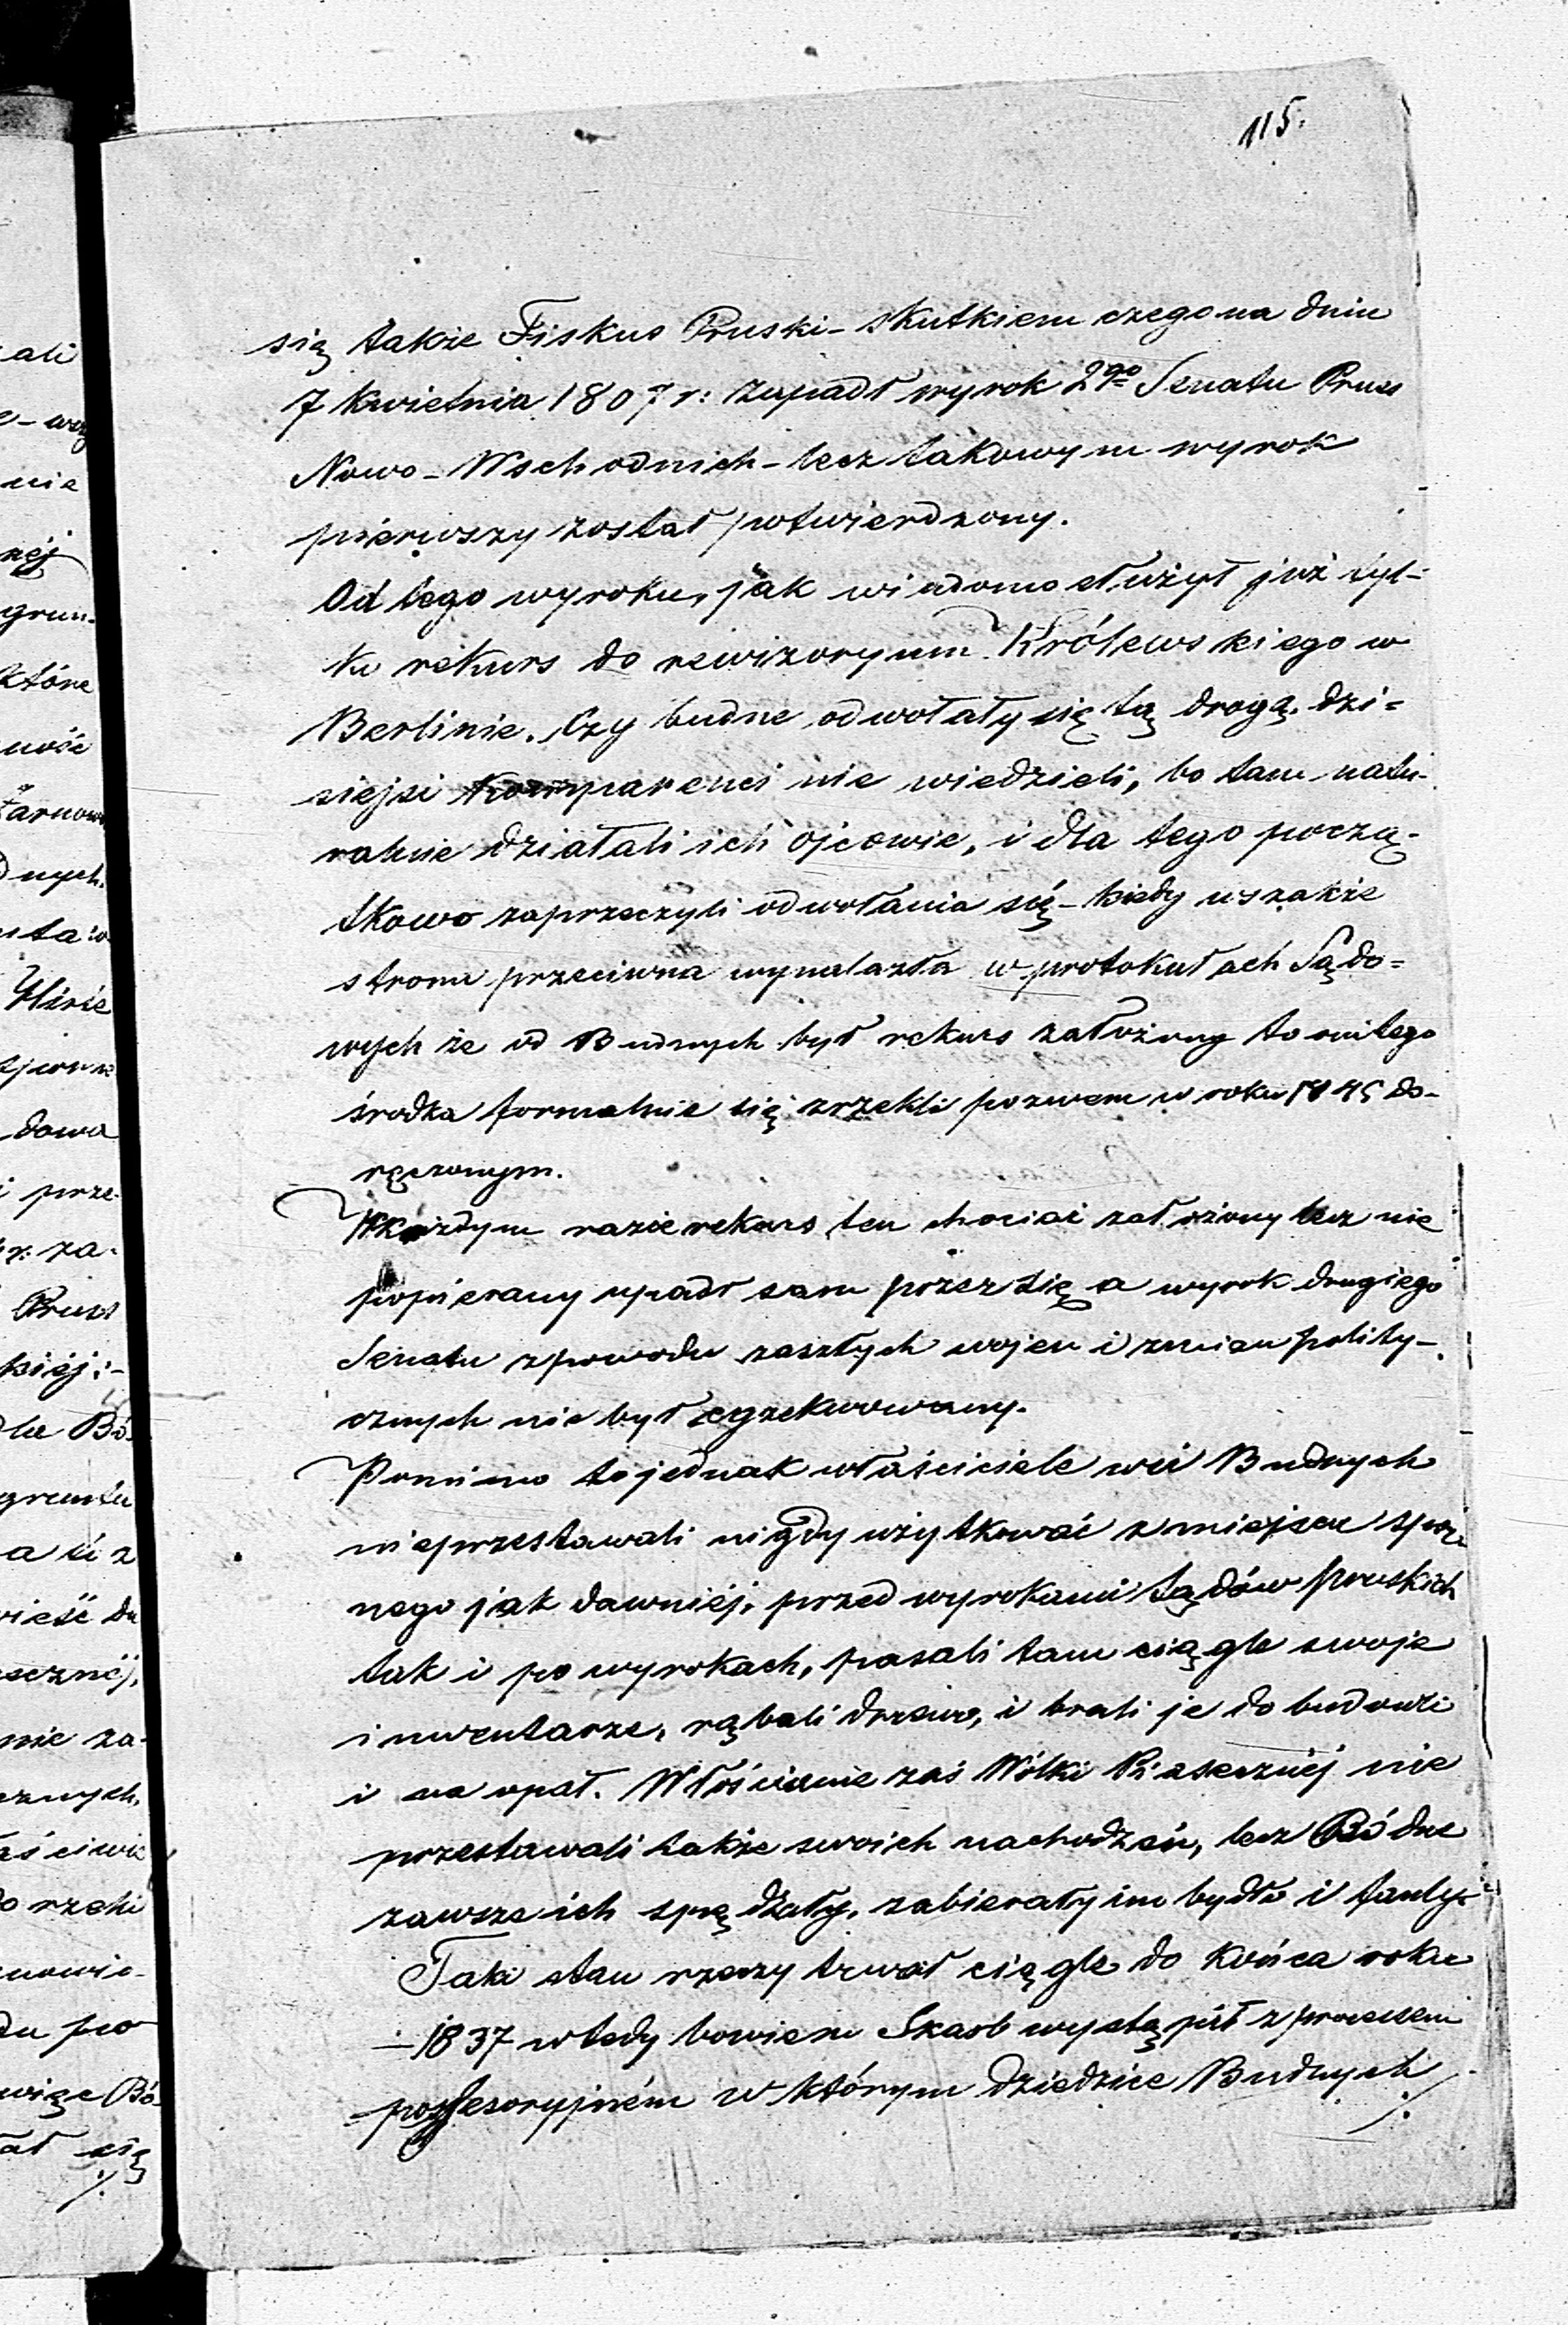 115.
się także Fiskus Pruski - skutkiem czego na dniu
7 Kwietnia 1807 r: zapadł wyrok 2go Senatu Pruss
Nowo-Wschodnich - lecz takowym wyrok
pierwszy został potwierdzony.
Od tego wyroku, jak wiadomo służył już tyl-
ko rekurs do rewizoryum Królewskiego w
Berlinie. Czy budne odwołały się tą drogą, dzi=
siejsi Komparenci nie wiedzieli, bo tam natu-
ralnie działali ich ojcowie, i dla tego począ-
tkowo zaprzeczyli odwołania się - kiedy wszakże
strona przeciwna wynalazła w protokułach Sądo=
wych że od Budnych był rekurs założony to oni tego
środka formalnie się zrzekli pozwem w roku 1845 do-
ręczonym.
W każdym razie rekurs ten chociaż założony lecz nie
popierany upadł sam przez się a wyrok drugiego
Senatu z powodu zaszłych wojen i zmian polity-
cznych nie był egzekwowany.
Pomimo to jednak właściciele wsi Budnych
nieprzestawali nigdy użytkować z miejsca spor
nego jak dawniéj, przed wyrokami Sądów pruskich
tak i po wyrokach, pasali tam ciągle swoje
inwentarze, rąbali drzewo, i brali je do budowli
i na opał. Włościanie zaś Wólki Piasecznéj nie
przestawali także swoich nachodzeń, lecz Bódne
zawsze ich spędzały, zabierały im bydło i fanty.
Taki stan rzeczy trwał ciągle do końca roku
- 1837 wtedy bowiem Skarb wystąpił z procesem
possesoryjném w którym dziedzice Budnych
./.